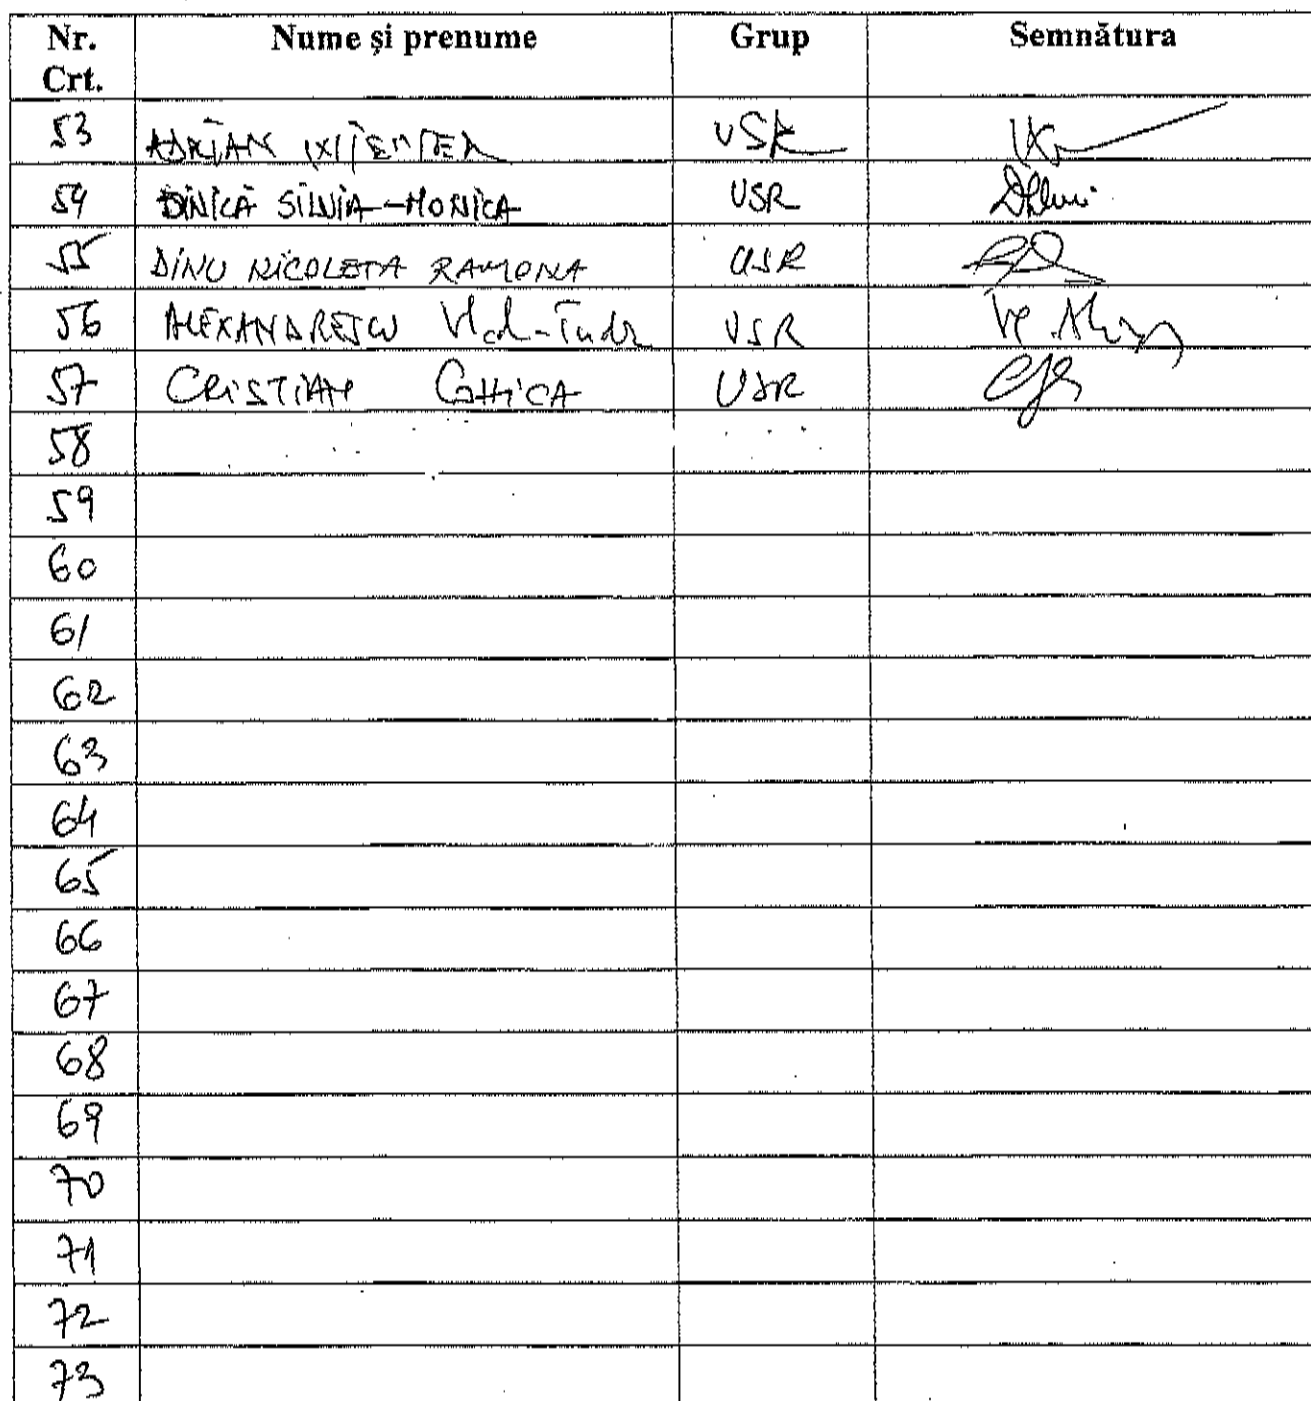 Nr. Crt. Nume și prenume Grup Semnătura
53 ADRIAN USR
54 DINICĂ SILVIA-MONICA USR
55 DINU NICOLETA RAMONA USR
56 ALEXANDRESCU Vlad-Tudor USR
57 CRISTIAN GHICA USR
58
59
60
61
62
63
64
65
66
67
68
69
70
71
72
73